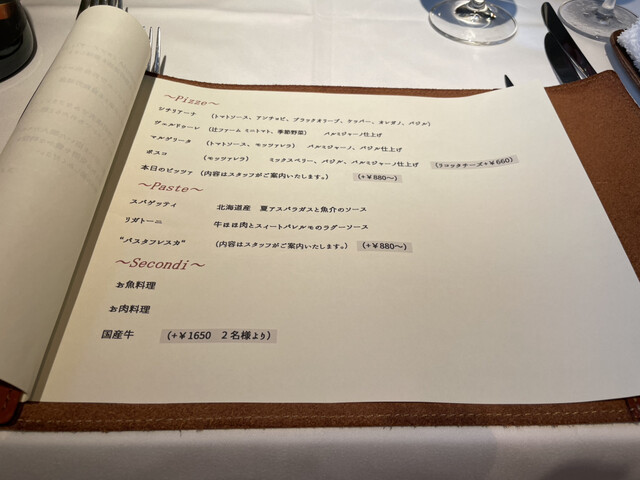 ～Pizze～
シチリアーナ （トマトソース、アンチョビ、ブラックオリーブ、ケッパー、オレガノ、バジル）
ヴェルドゥーレ （辻ファーム ミニトマト、季節野菜） パルミジャーノ仕上げ
マルゲリータ （トマトソース、モッツァレラ） パルミジャーノ、バジル仕上げ
ボスコ （モッツァレラ） ミックスベリー、バジル、パルミジャーノ仕上げ （リコッタチーズ+￥660）
本日のピッツァ （内容はスタッフがご案内いたします。） （+￥880～）
～Paste～
スパゲッティ 北海道産 夏アスパラガスと魚介のソース
リガトーニ 牛ほほ肉とスィートパレルモのラグーソース
"パスタフレスカ" （内容はスタッフがご案内いたします。） （+￥880～）
～Secondi～
お魚料理
お肉料理
国産牛 （+￥1650 2名様より）